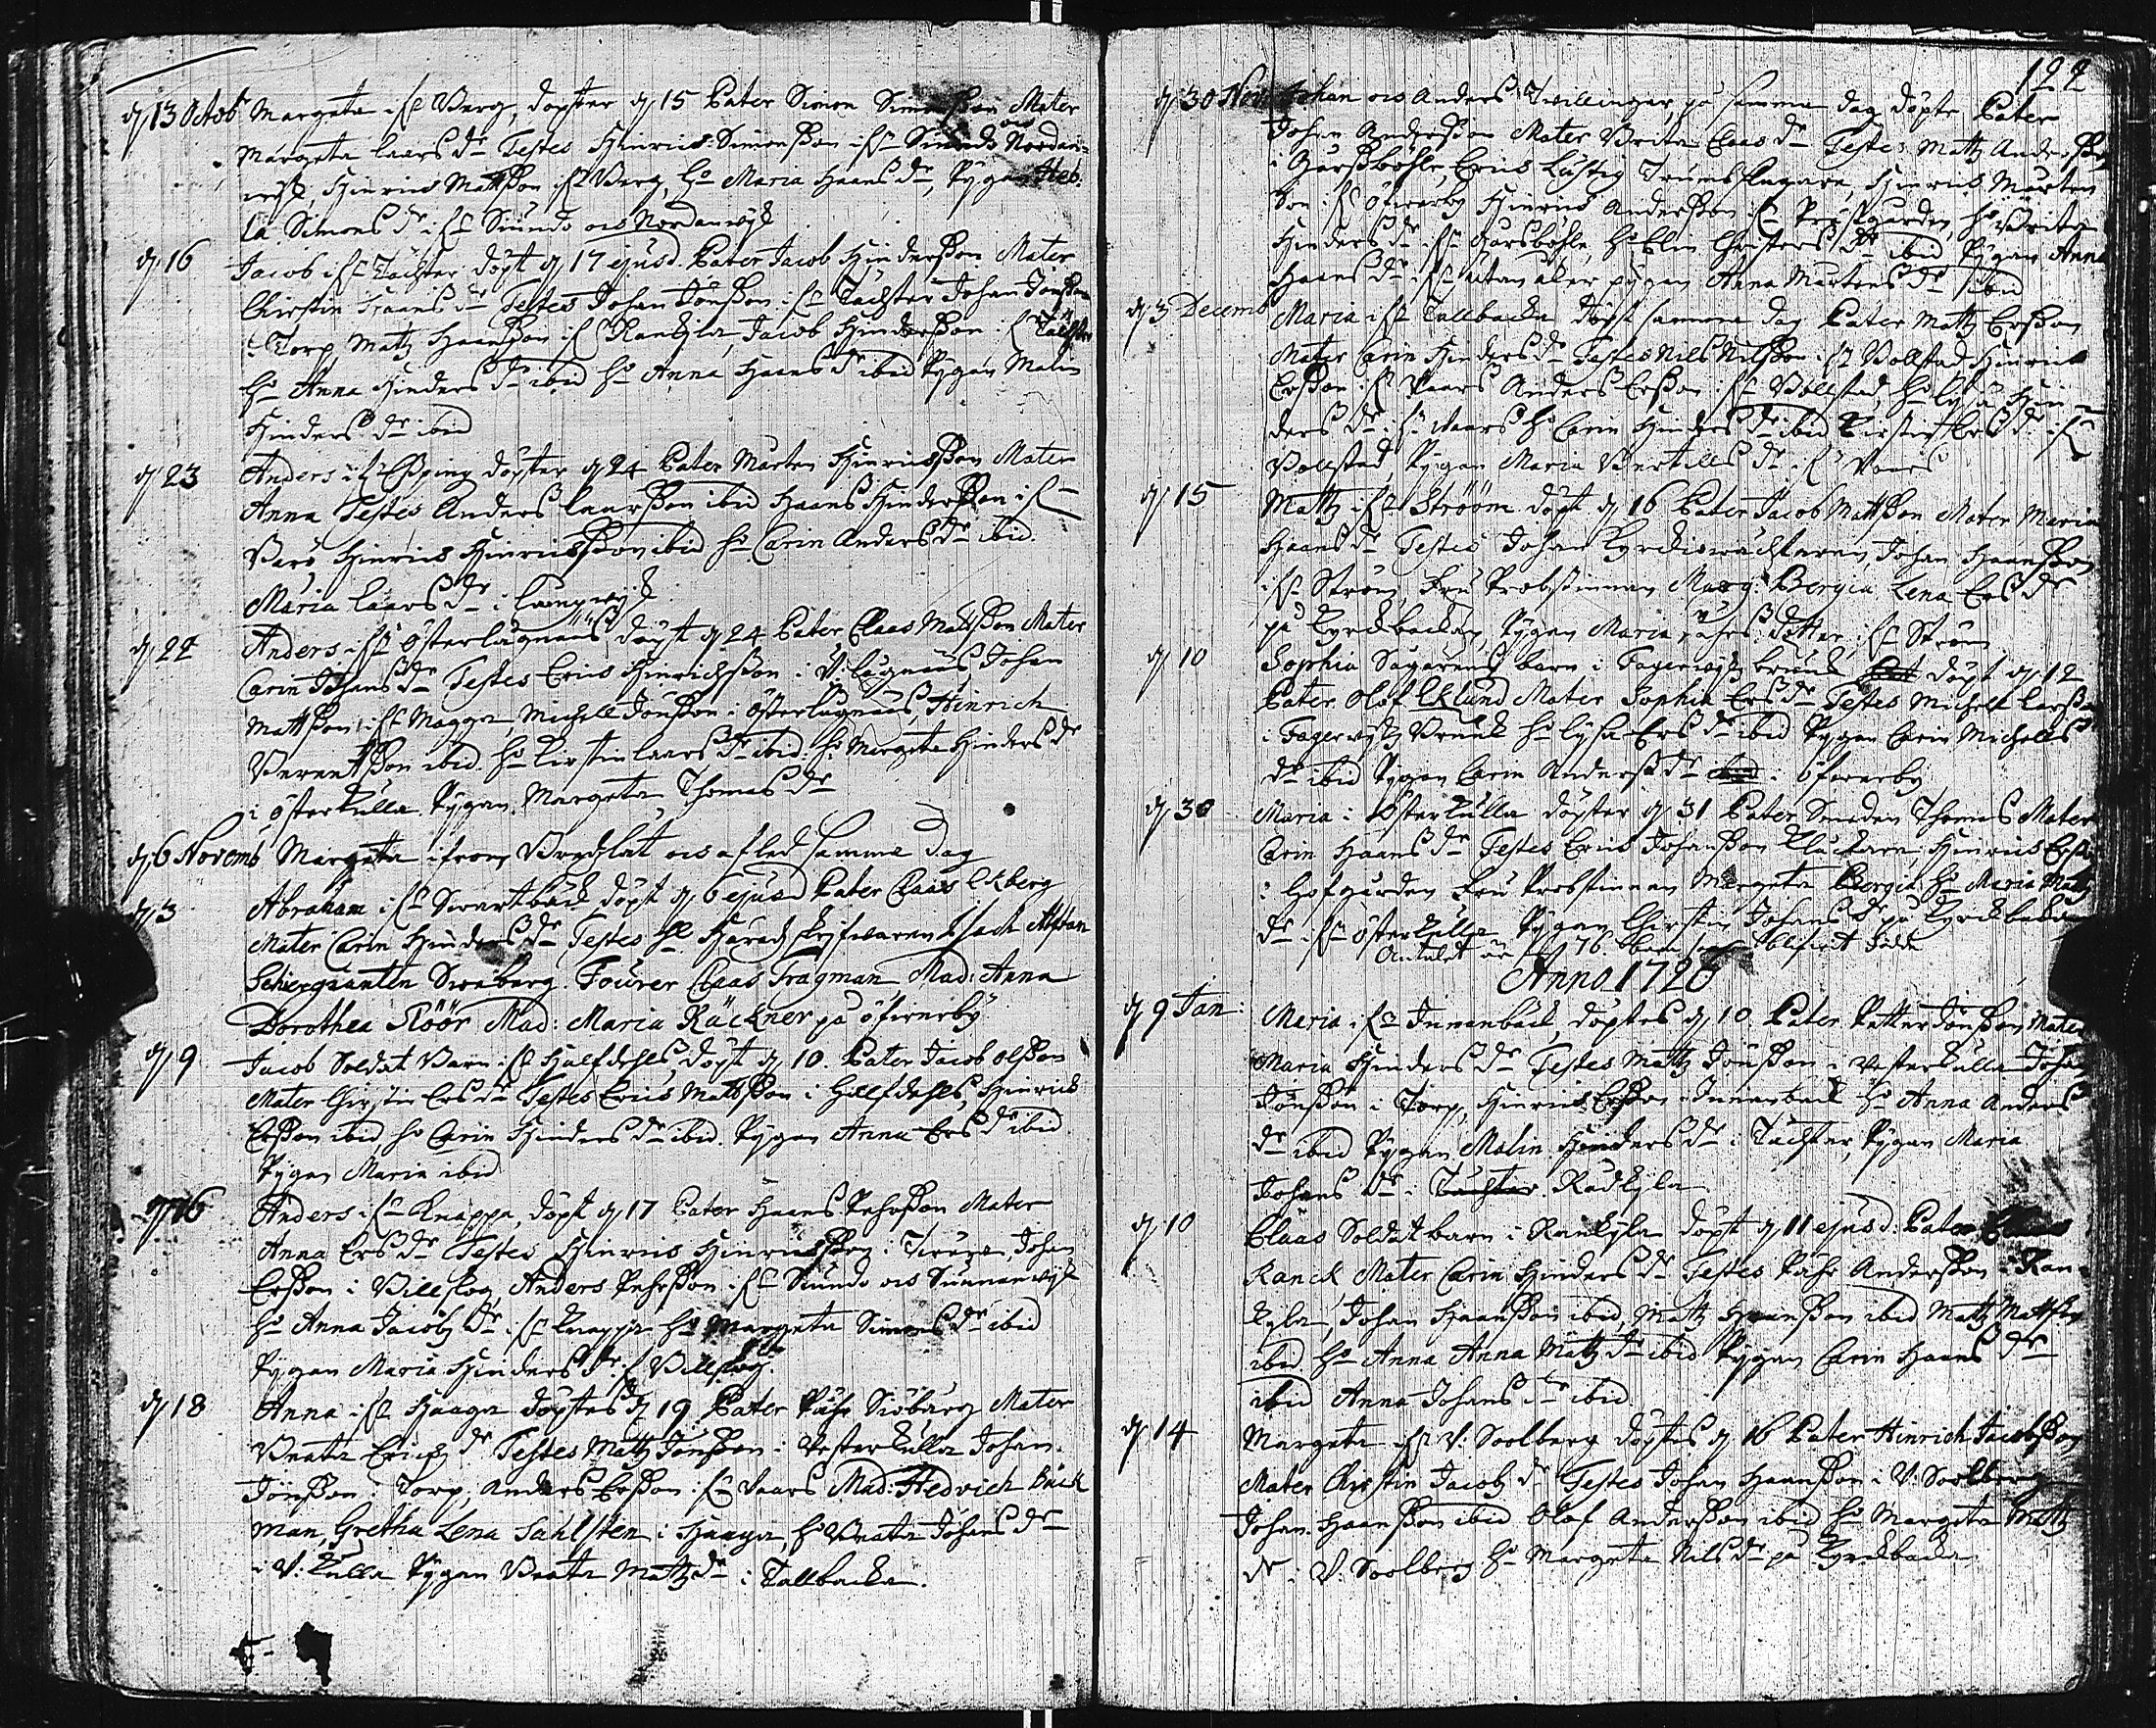 d. 13 Octob Margeta i fr Berg, döpter d. 15 Pater Simon Simonsson Mater
Margeta Laars dr Testes Hinrics Simonsson i fr Siundo Nordan=
wyk, Hinrics Mattsson fr Berg, ho Maria Haans dr, Pygan Heb.
la Simons dr i fr Siundo ois Nordanwyk
d. 16 Jacob i fr Tächter döpt d. 17 ejusd. Pater Jacob Hindersson Mater
Christin Haans dr Testes Johan Jönsson i fr Tächter Johan Jönsson
i Torp, Matz Haansson i fr Rankyla, Jacob Hindersson i fr Tächter
ho Anna Hinders dr ibid ho Anna Haans dr ibid Pygan Malin
Hinders dr ibid
d. 23 Anders i fr Esping döpter d. 24 Pater Mårten Hinricsson Mater
Anna Testes Anders Laarsson ibid Haans Hindersson i fr
Barö, Hinrics Hinricsson ibid ho Carin Anders dr ibid.
Maria Laars dr i Långwyk
d. 22 Anders i fr Österlugnäs döpt d. 24 Pater Claas Mattsson Mater
Carin Johans dr Testes Erics Hinrichsson i V: Lugnäs, Johan
Mattsson i fr Magger, Michell Jönsson i Österlugnäs, Hinrich
Berentsson ibid ho Kirstin Laars dr ibid. ho Margeta Hinders dr
i Österkulla Pygan Margeta Thomas dr
d. 6 Novemb Margeta ifrån ois afled samma dag
d. 3 Abraham i fr Swartbäck döpt d. 6 ejusd Pater Claas Ekberg
Mater Carin Hinders dr Testes Hl Häradzskrifwaren Isach Alftan
Schergianten Sweberg. Fourer Claas Fragman Mad: Anna
Dorothea Röör Mad: Maria Räckner på öfwerby
d. 9 Jacob Soldat Barn i fr Halfdehls, döpt d. 10. Pater Jacob Olsson
Mater Christin Ers dr Testes Erics Mattsson i Halfdehls, Hinrich
Ersson ibid ho Carin Hinders dr ibid. Pygan Anna Ers dr ibid
Pygan Maria ibid
d. 16 Anders i fr Knappa, döpt d. 17 Pater Haans Pehrsson Mater
Anna Ers dr Testes Hinrics Hinricsson i Johan
Ersson i Billskog Anders Pehrsson i fr Siundo ois Sunnanwyk
ho Anna Jacobz dr i fr Knappa ho Margeta Simons dr ibid
Pygan Maria Hinders dr i Billskog
d. 18 Anna i fr Haaga döptes d. 19 Pater Påhr Siöberg Mater
Beata Erics dr Testes Mattz Jönsson i Westerkulla Johan
Jönsson i Torp, Anders Ersson i fr Baars Mad: Hedvich Bäck
man, Gretha Lena Sahlsten i Haaga, ho Beata Johans dr
i V: Kulla Pygan Beata Mattz dr i Tallbacka.
122
d. 30 Nov Johan ois Anders Twillingar, på samma dag döpte Pater
Johan Andersson Mater Brita Claas dr Testes Matz Andersson
i Garssböhle, Erics Lustig Trumslagare, Hinrics Mårten
son i fr öfwerby Hinrics Andersson i fr Prästgården, ho Brita
Hinders dr i fr Garsböhle, ho Elin Christers dr ibid Pygan Anna
Haans dr i fr utan åker pygan Anna Mårtens dr ibid
d. 3 Decemb Maria i fr Tallbacka döpt samma dag Pater Mattz Ersson
Mater Carin Hinders dr Testes Nils Nilsson i fr Bollstad Hinrich
Ersson i fr Baars Anders Ersson i fr Bollstad, ho Lysa Hin
ders dr i fr Baars ho Carin Hinders dr ibid Kirstin Ers dr i fr
Bollstad, Pygan Maria Bertills dr i fr Baars
d. 15 Mattz i fr Strööm döpt d. 16 Pater Jacob Mattsson Mater Maria
Haans dr Testes Johan Kyrckiowäcktaren, Johan Haansson
i fr Ström, Fru Probstinnan Marg: Bergia Lena Ers dr
på Kyrckbacken, Pygan Maria Påhrs dotter i fr Ström
d. 10 Sophia Sågarens barn i Fagerwyks bruk döpt d. 12
Pater Olof Eklund Mater Sophia Ers dr Testes Michell Larsson
i Fagerwyks Bruuk ho Lysa Ers dr ibid Pygan Carin Michells
dr ibid Pygan Carin Anders dr ibid i öfwerby
d. 30 Maria i Österkulla döpter d. 31 Pater Smeden Thomas Mater
Carin Haans dr Testes Erics Johansson Kluckare, Hinrics Ersson
i Hofgården Fru Probstinnan Margeta Bergia ho Maria Mattz
dr i fr Österkulla Pygan Christin Johans dr på Kyrckbacken
Antalet är 76 barn
Anno. 1720
d. 9 Jan: Maria i fr Innanbäck, döptes d. 10. Pater Petter Jönsson Mater
Maria Hinders dr Testes Mattz Jönsson i Westerkulla Johan
Jönsson i Torp, Hinrics Ersson i Innanbäck ho Anna Anders
dr ibid Pygan Malin Hinders dr i Tächter, Pygan Maria
Johans dr i Tächter Rådkyla
d. 10 Claas Soldat barn i Rankyla döpt d. 11 ejusd: Pater Claas
Ranck Mater Carin Hinders dr Testes Påhr Andersson i Ran-
kyla, Johan Haansson ibid, Mattz Haansson ibid Mattz Mattsson
ibid ho Anna Anna Mattz dr ibid Pygan Carin Haans dr
ibid Anna Johans dr ibid
d. 14 Margeta i fr V: Soolberg döptes d. 16 Pater Hinrich Jacobsson
Mater Christin Jacobz dr Testes Johan Haansson i V: Soolberg
Johan Haansson ibid Olof Andersson ibid ho Margeta Mattz
dr i V: Soolberg ho Margeta Nils dr på Kyrckbacka